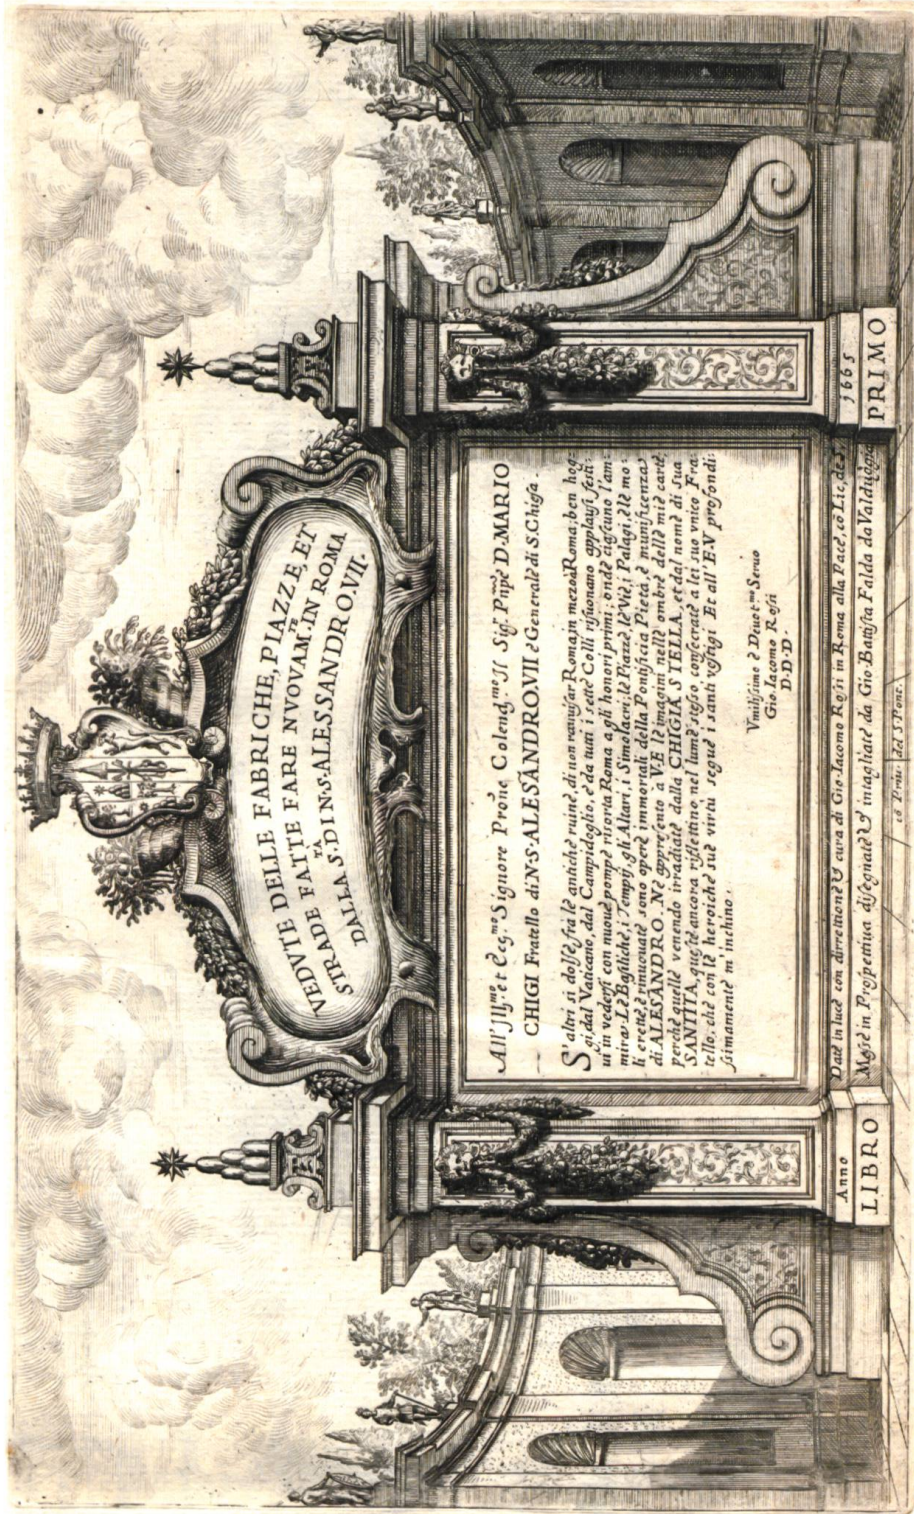 VEDVTE DELLE FABRICHE, PIAZZE, ET
STRADE FATTE FARE NVOVAM.TE IN ROMA
DALLA S.TA DI N.S. ALESSANDRO. VII.
All' Ill.mo et Ecc.mo Signore Prone Colend.mo Il Sig.r Pnpe D. MARIO
CHIGI Fratello di N.S. ALESSANDRO. VII e Generale di S. Chiesa.
S'altri si dolse fra le antiche ruine, di non rauuisar Roma in mezo à Roma: ben hog
gi dal Vaticano, dal Campidoglio, e da tutti i sette Colli risuonano applausi festi:
ui in vedersi con nuoue pompe risorta Roma a gli honori primi; onde ciascuno l'am
mira. Le Basiliche, i Tempij, gli Altari, i Simolacri, le Piazze, le Vie, i Palagi, e le mo
li erette, e rinnouate, sono opere immortali della Pontificia Pietà, e munificenza
di ALESANDRO. Ne appresento a V.E le imagini nelle ombre delle mie carte
perche quelle venendo irradiate dalla CHIGIA STELLA, et dal nome di Sua
SANTITA, quete ancora risplettino nel lume stesso, consecrate a lei suo vnico Fra
tello, che con le heroiche sue virtù segue i santi vestigi. Et all' E.V profondi
ssimamente m'inchino.
Vmilissimo e Deuot.mo Seruo
Gio. Iacomo Rossi
D. D. D.
Date in luce con direttione, e cura di Gio. Iacomo Rossi in Roma alla Pace, cō Lic. de S.
Messe in Prospettiua disegnate, et intagliate da Gio. Battista Falda da Valduggia
cō Priu. del S. Pont.
Anno 1665
LIBRO PRIMO